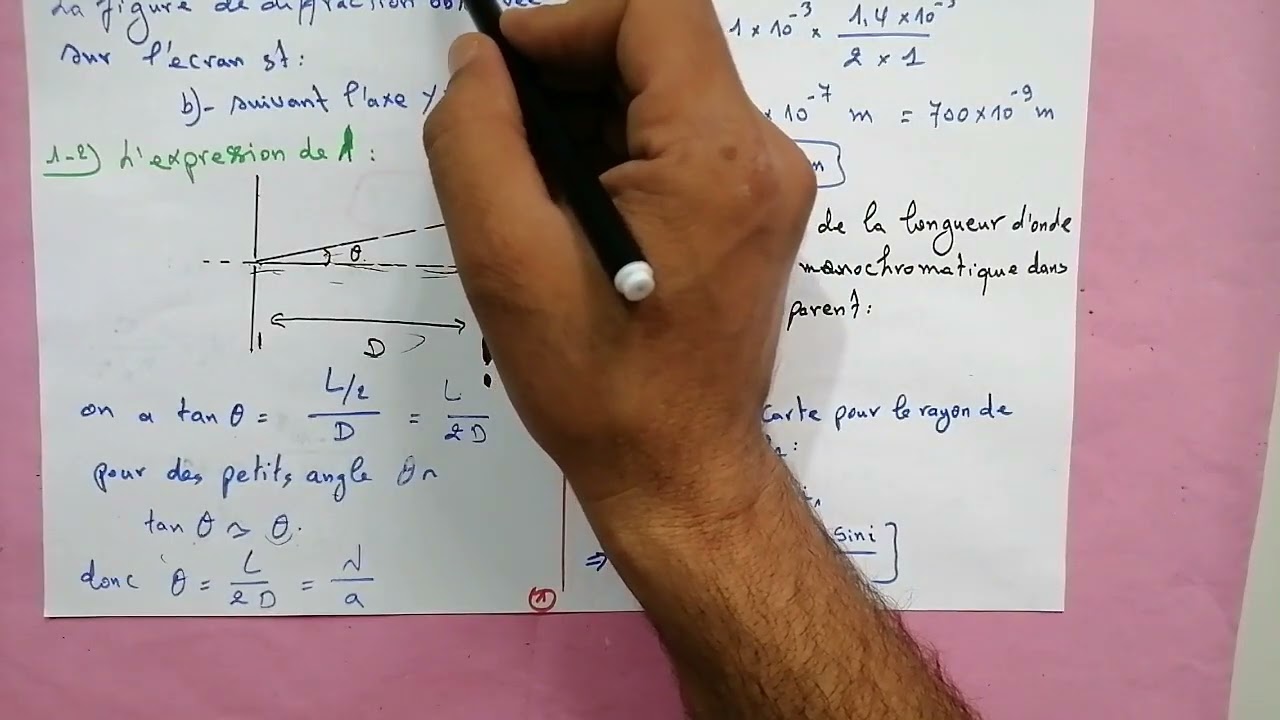 La figure de diffraction
sur l'écran st:
b)- suivant l'axe y
1-2) L'expression de λ :
θ
D
on a tan θ = L/2 / D = L / 2D
pour des petits angle θ
tan θ ≈ θ.
donc θ = L / 2D = λ / a
1 × 10⁻³ × 1,4 × 10⁻³ / 2 × 1
× 10⁻⁷ m = 700 × 10⁻⁹ m
de la longueur d'onde
monochromatique dans
parent :
carte pour le rayon de
sini
⇒